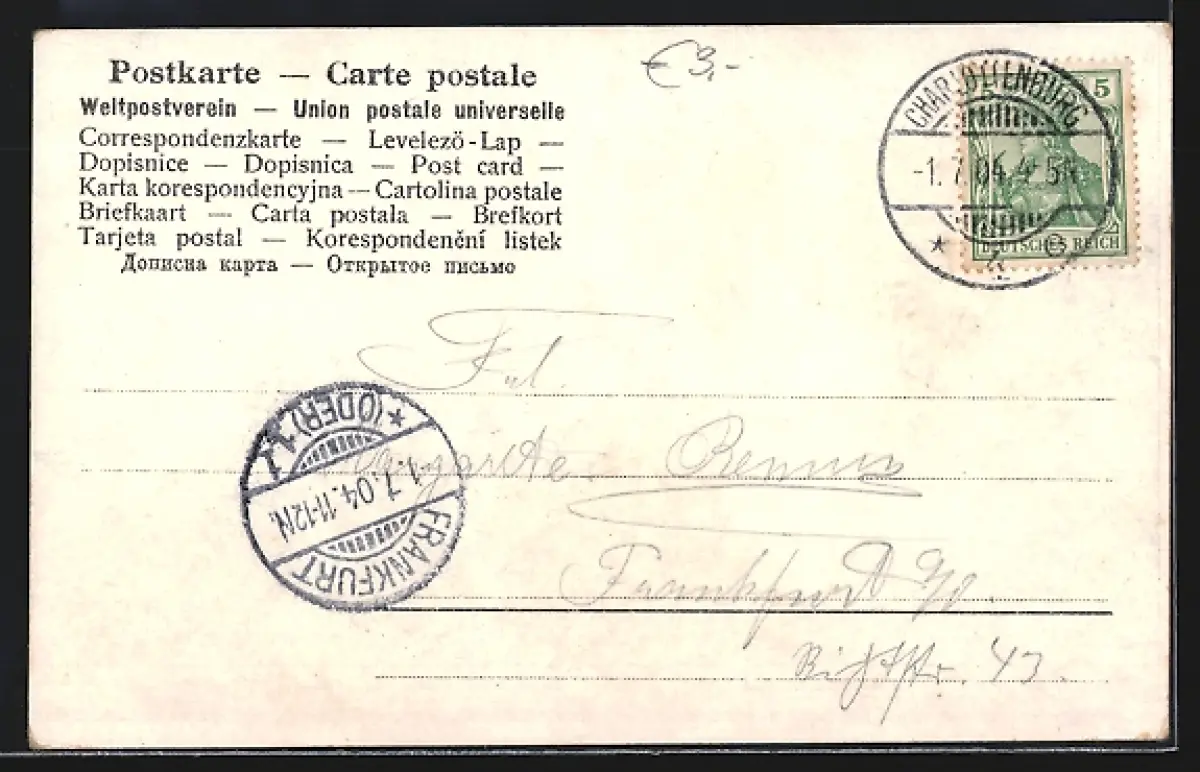 Postkarte — Carte postale
Weltpostverein — Union postale universelle
Correspondenzkarte — Levelező-Lap —
Dopisnice — Dopisnica — Post card —
Karta korespondencyjna — Cartolina postale
Briefkaart — Carta postala — Brefkort
Tarjeta postal — Korespondenční listek
Дописна карта — Открытое письмо
€ 3,-
CHARLOTTENBURG
-1.7.04. 4-5N
* 2 c
5
DEUTSCHES REICH
Frl.
Margarete
Frankfurt a/O.
Richtstr. 43.
FRANKFURT
-1.7.04. 11-12N.
* (ODER) 1 *
1